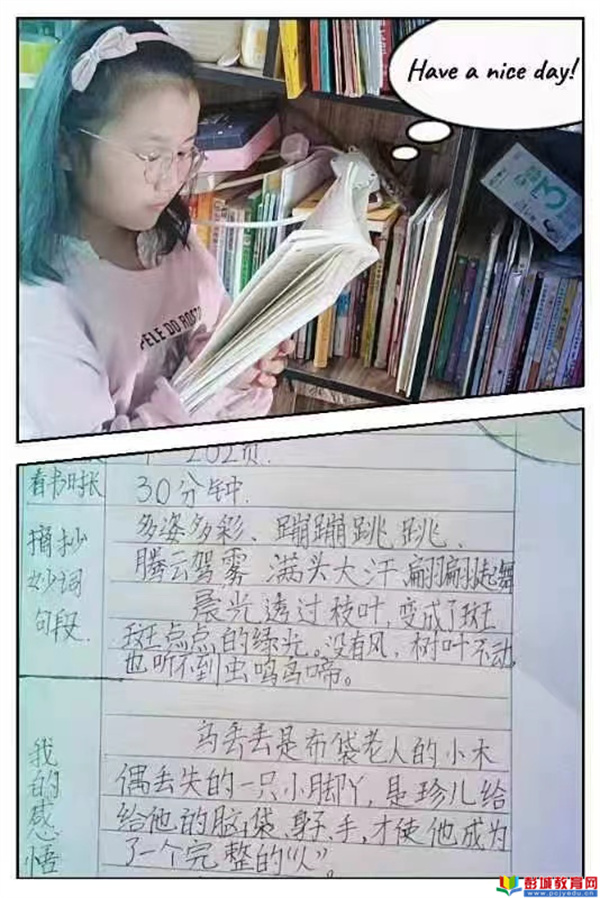 Have a nice day!
PELE DO ROSTO
3
202页.
看书时长
30分钟.
摘抄
妙词
句段.
多姿多彩、蹦蹦跳跳、
腾云驾雾 满头大汗、翩翩起舞
晨光透过枝叶,变成了斑
斑点点的绿光。没有风、树叶不动,
也听不到虫鸣鸟啼。
我
的
感
悟
乌丢丢是布袋老人的小木
偶丢失的一只小脚丫,是珍儿给
给他的脑袋、身子、手,才使他成为
了一个完整的“人”。
彭城教育网
www.pcjyedu.cn